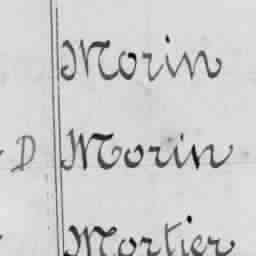 Morin
D Morin
Mortier